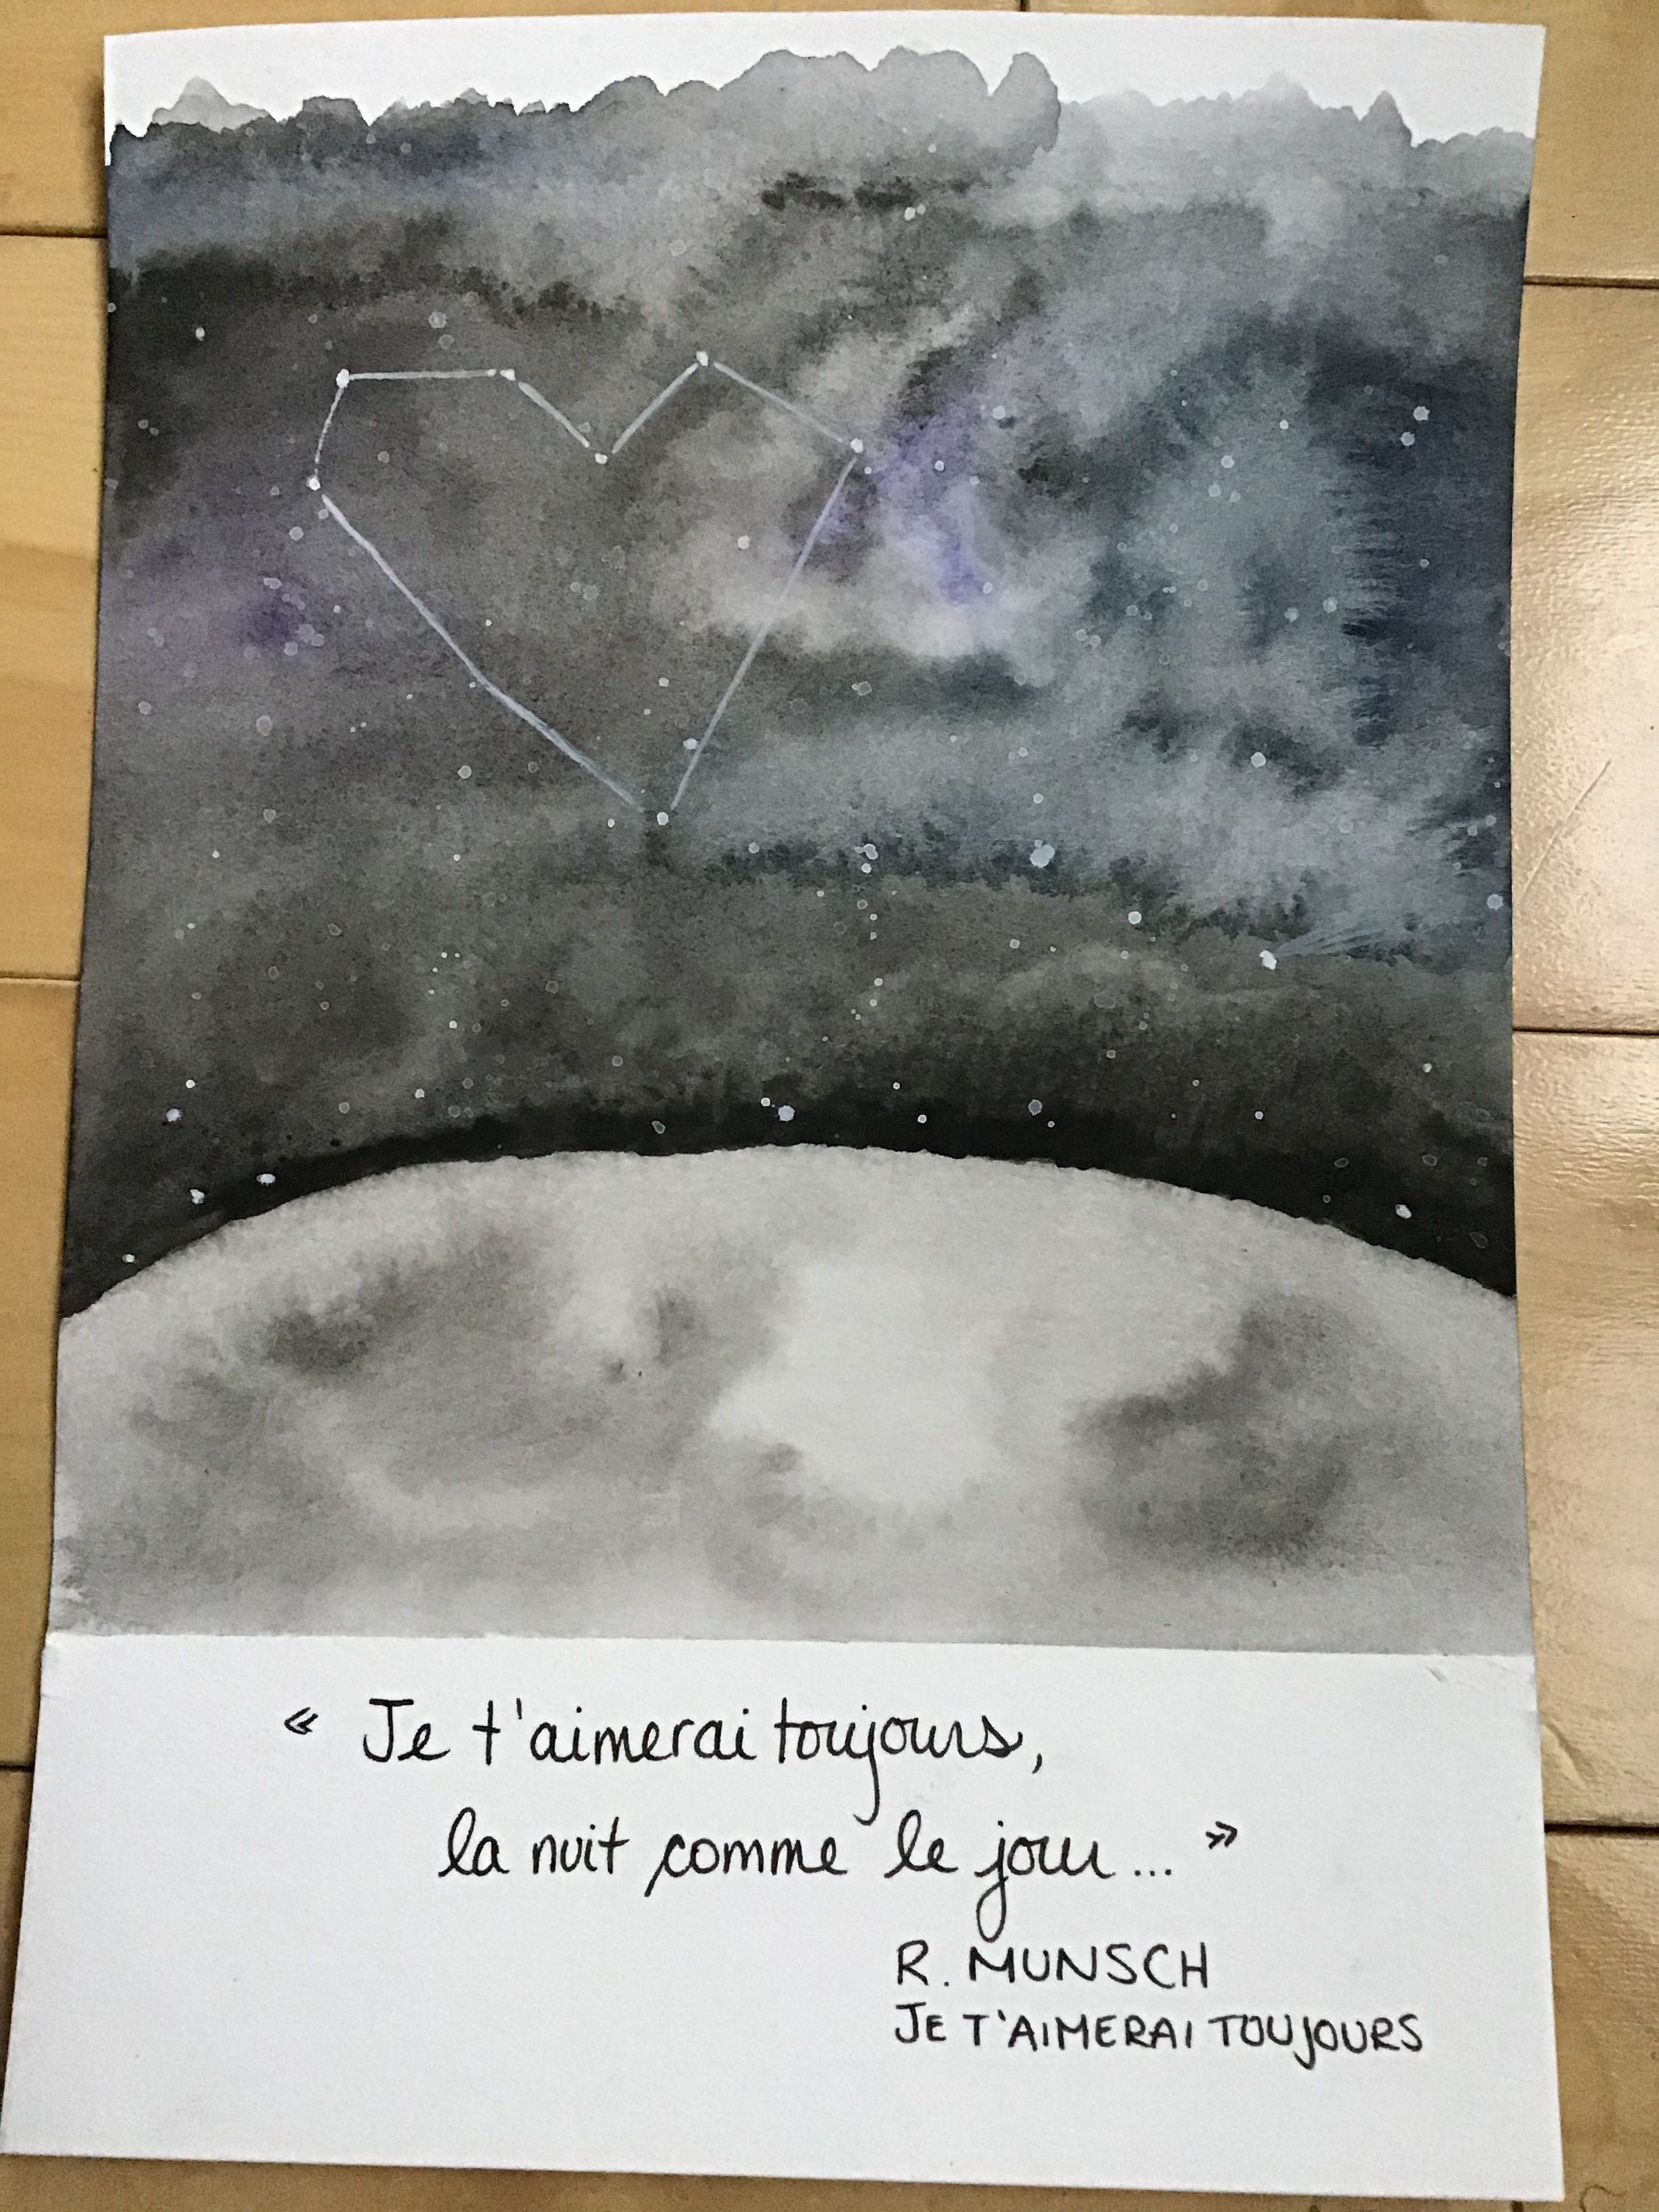 « Je t'aimerai toujours,
la nuit comme le jour... »
R. MUNSCH
JE T'AIMERAI TOUJOURS